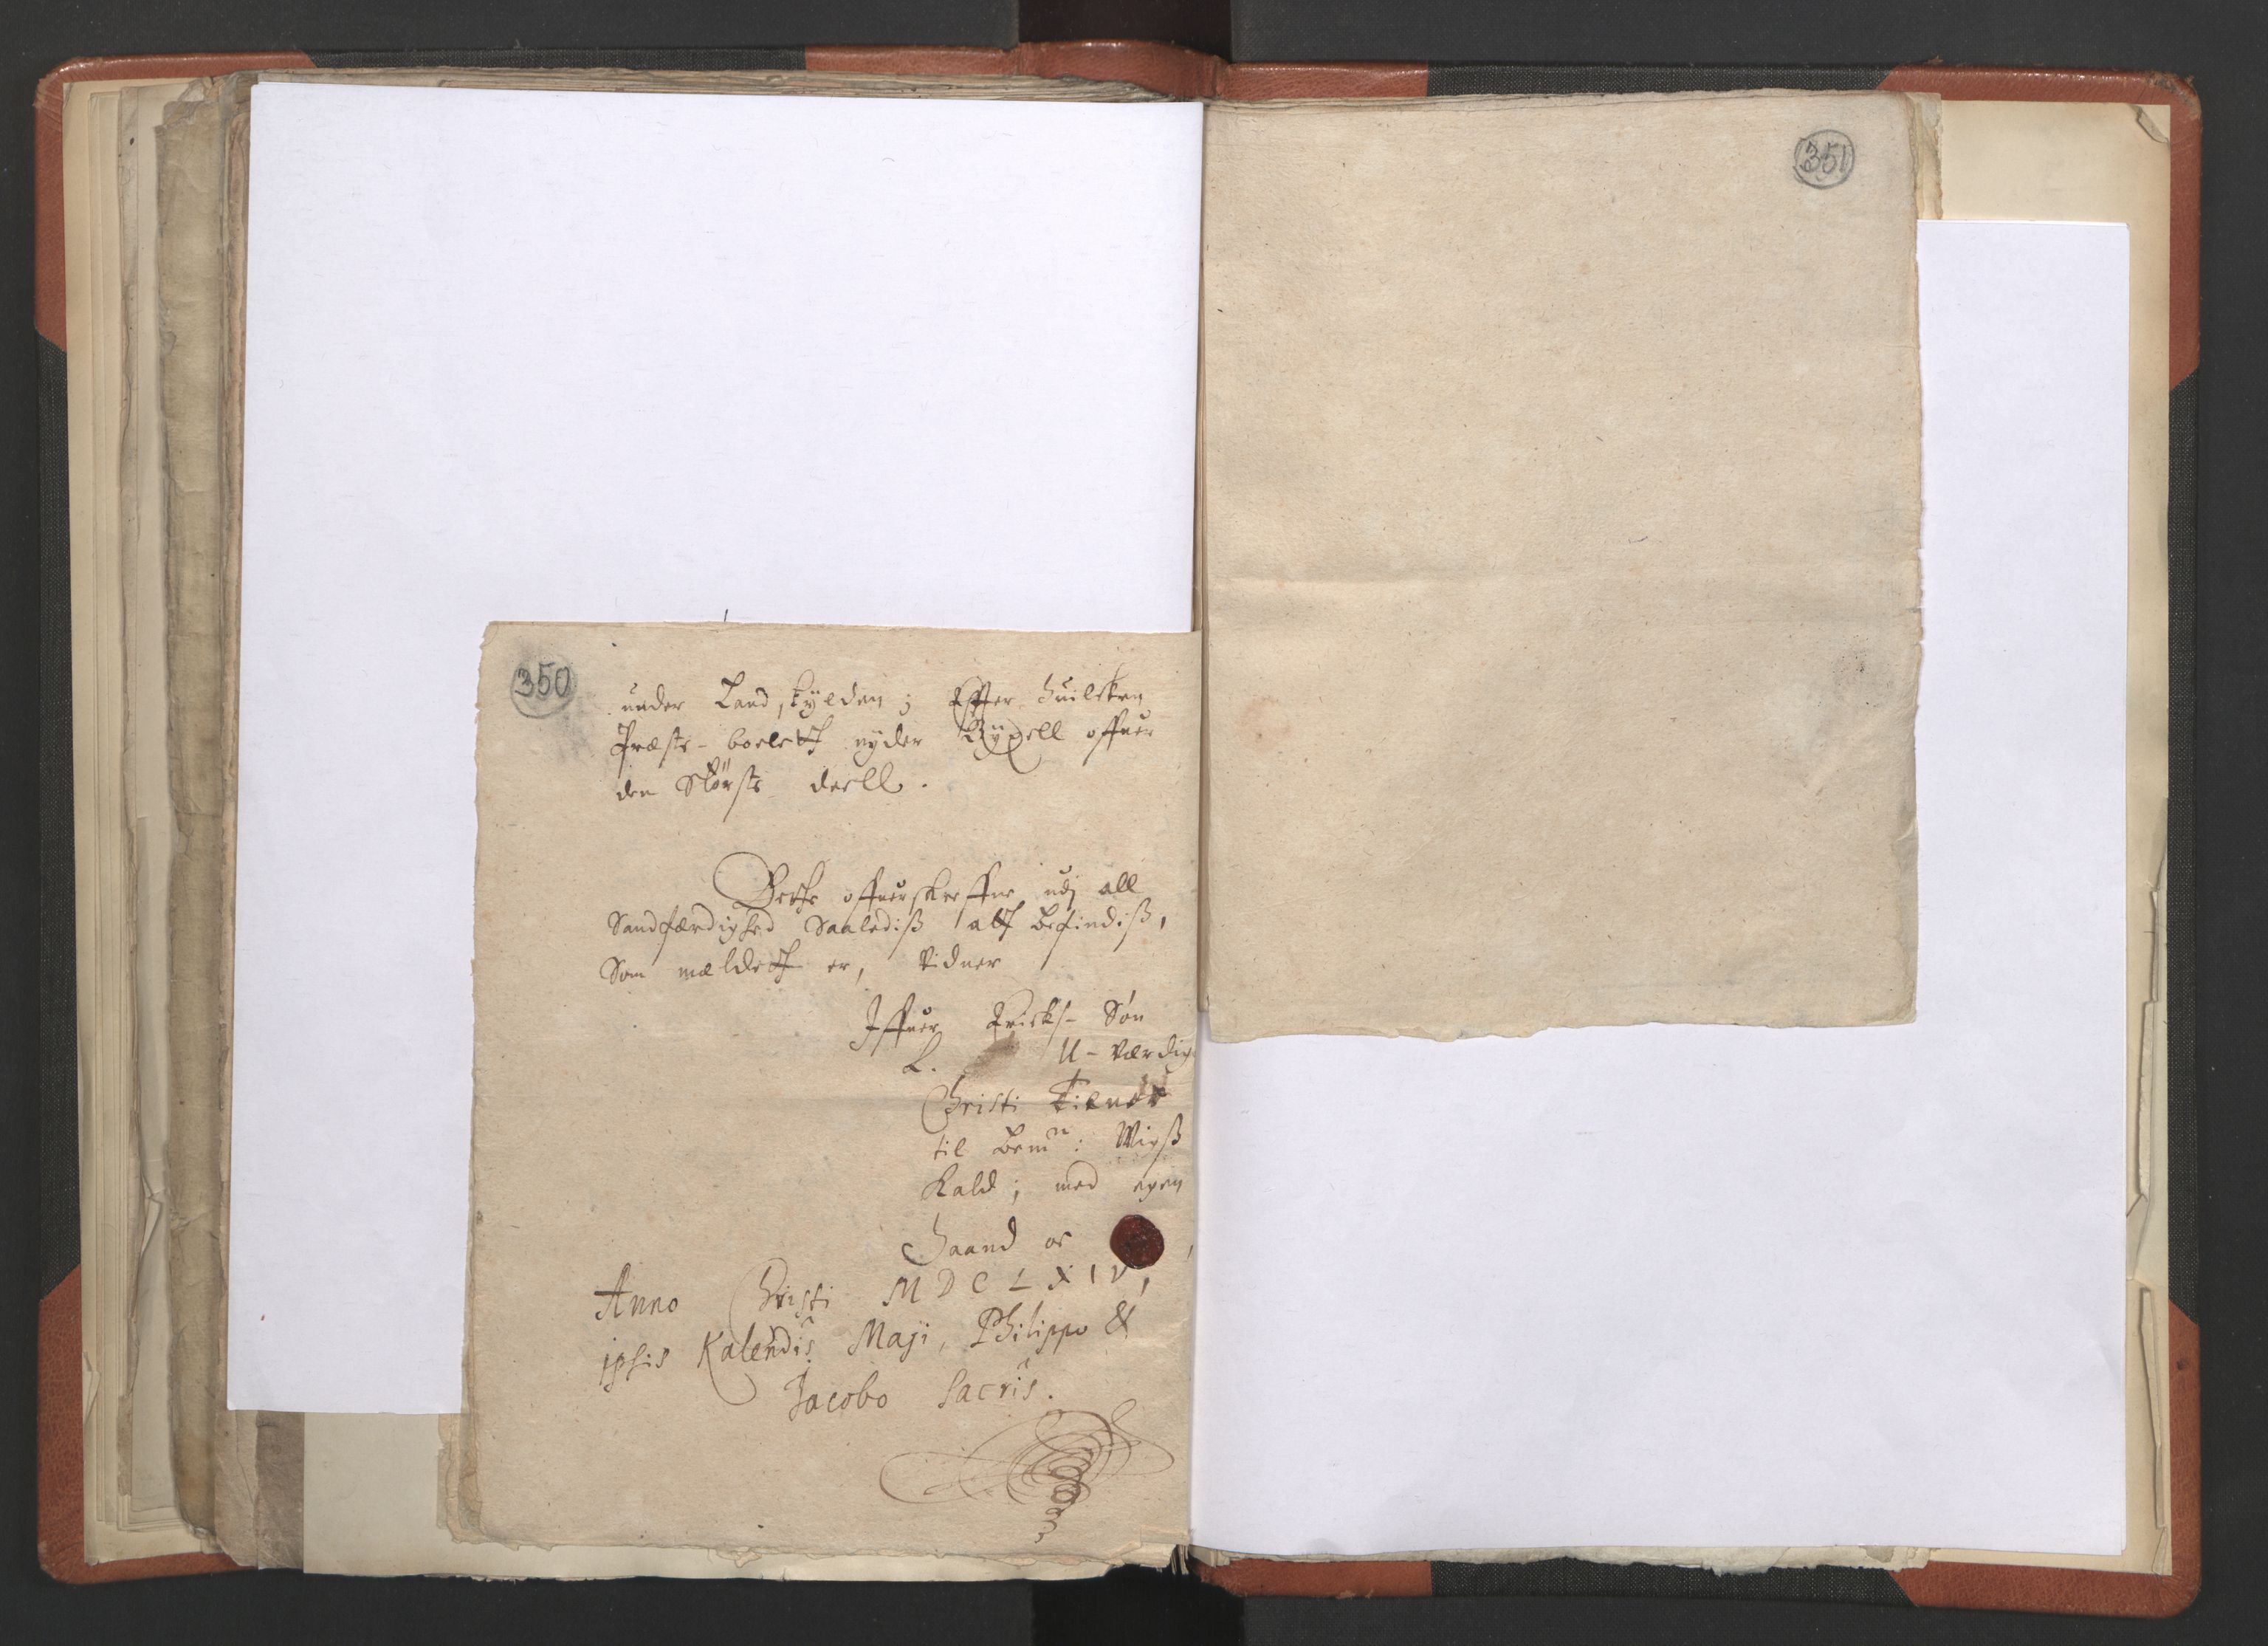 350
under Landskylden; Effter huilcken
Præste-boelet nyder Byxell offuer
den Störste deell.
Dette offuerskreffne udj all
Sandfærdighed Saalediß att befindiß,
Som mældett er, vidner
Iffuer Ericks-Søn
L. U-værdig
Christi Tiener
til bemn: Wigß
Kald; med egen
haand oc
Anno Christi MDCLXIV,
ipsis Kalendis Maji, Philippo &
Jacobo Sacris.
351